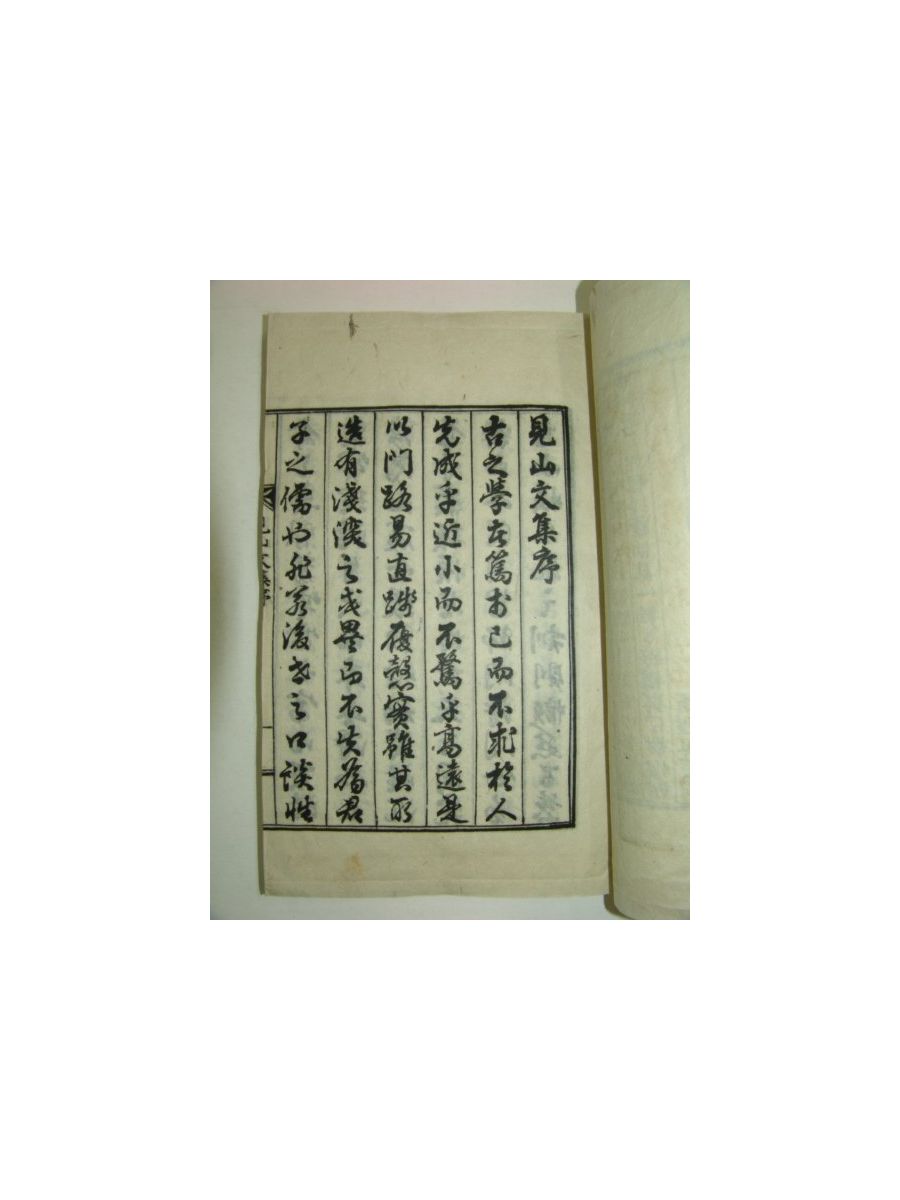 見山文集序
古之學在篤於己而不求於人
先成乎近小而不騖乎高遠是
以門路易直踐履慤實雖其所
造有淺深之或異而不失爲君
子之儒而非若後世之口談性
見山文集序